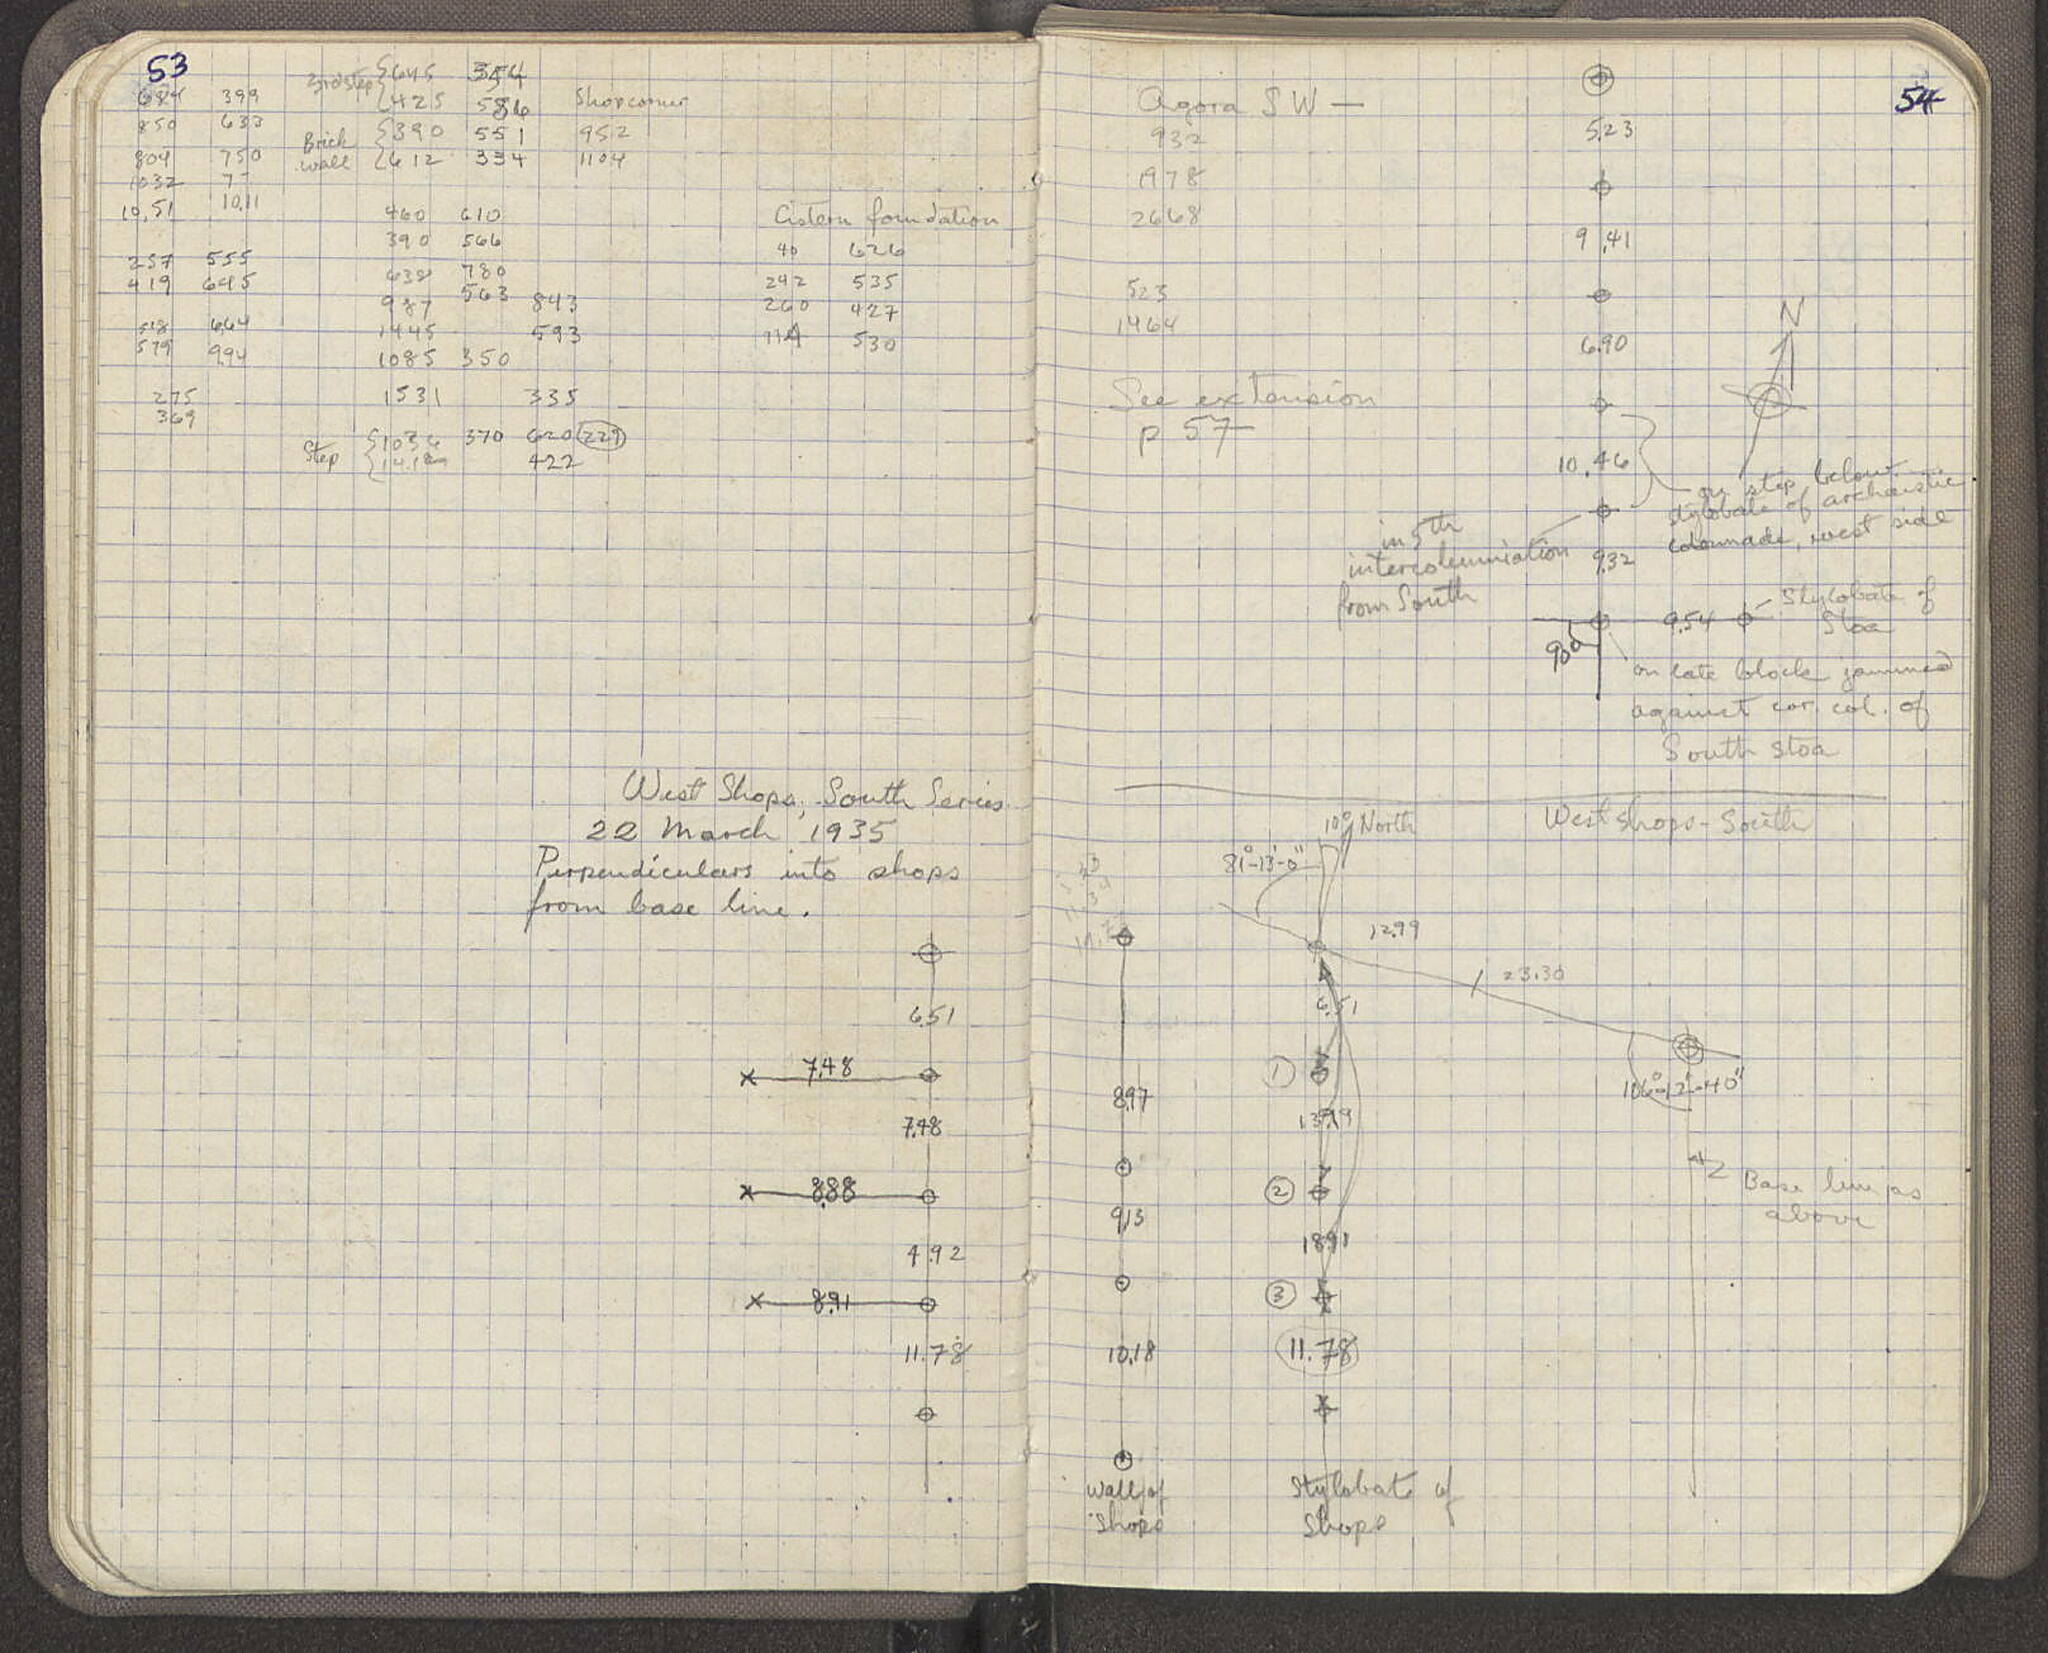 53
684 399
850 633
804 750
1032
10,51 10.11
257 555
419 645
518 664
579 994
275
369
3rd step 645 354
425 586 Shop corner
Brick 390 551 952
wall 612 334 1104
460 610
390 566
638 780
987 563 843
1445 593
1085 350
1531 335
Step 1036 370 620 229
422
Cistern foundation
40 626
292 535
260 427
530
West Shops, South Series
22 March 1935
Perpendiculars into shops
from base line.
6.51
7.48
7.48
8.88
4.92
8.91
11.78
54
Agora SW —
932
1978
2668
523
1464
See extension
p 57
5.23
9.41
6.90
10.46
9.32
9.54
90°
N
on step below
stylobate of archaistic
colonnade, west side
in 5th
intercolumniation
from South
Stylobate of
Stoa
on late block jammed
against cor. col. of
South Stoa
West shops - South
10° North
81°-13'-0"
12.99
23.30
6.51
106°-12'-40"
1
13.99
2
18.91
3
11.78
8.97
9.13
10.18
Base line as
above
Wall of
Shops
Stylobate of
Shops